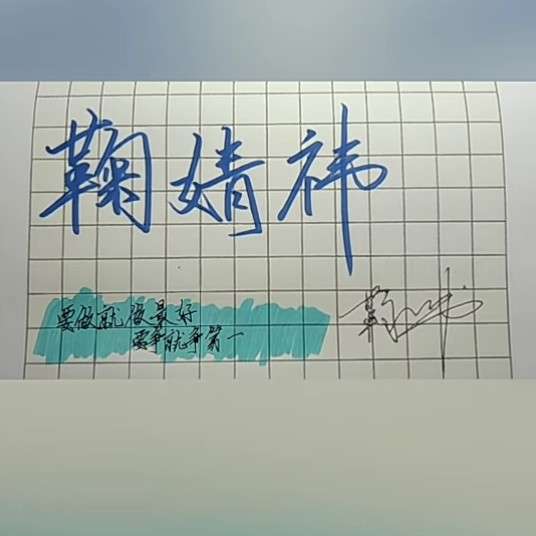 鞠婧祎
要做就做最好
要争就争第一